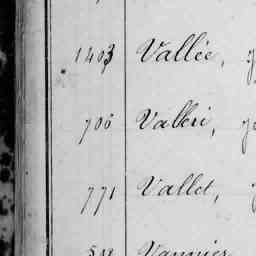 1403 Vallée,
706 Valleri,
771 Vallet,
Vannier